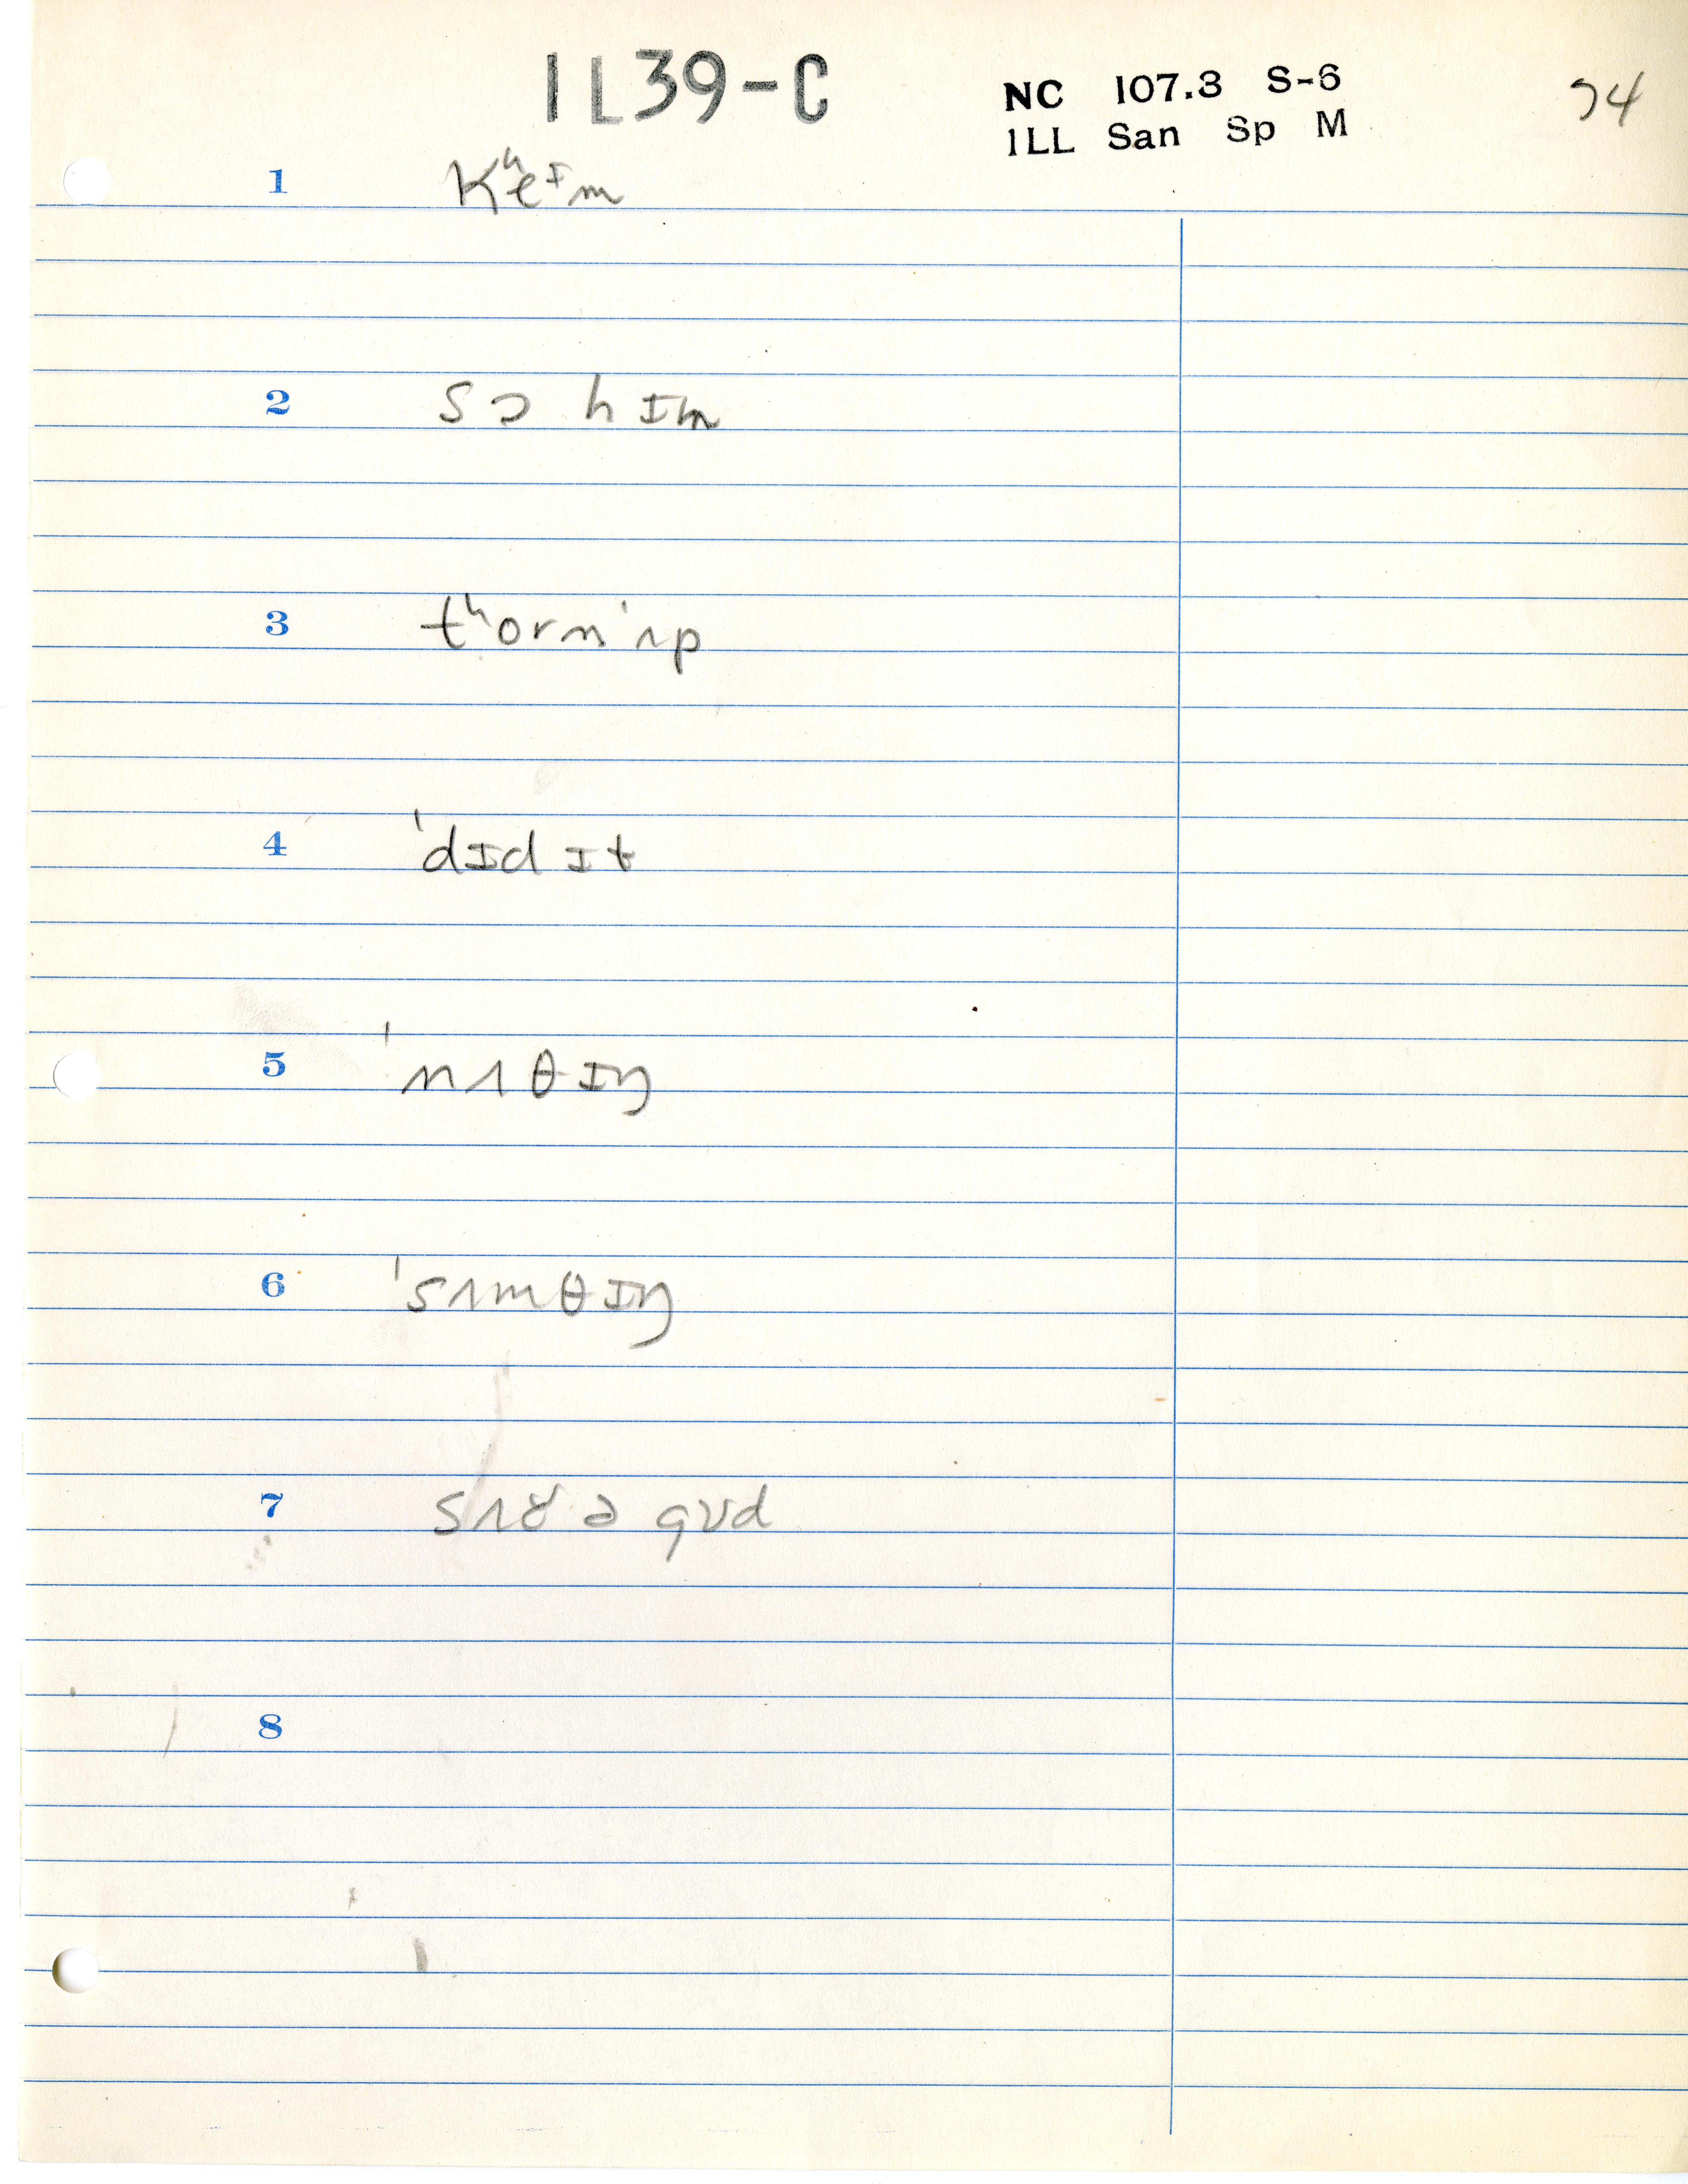 1L39-C
NC 107.3 S-6
ILL San Sp M
74
1 Kʰeᶦm
2 sɔ hɪm
3 tʰorn ˈʌp
4 ˈdɪd ɪt
5 ˈnʌθɪŋ
6 ˈsʌmθɪŋ
7 sʌtʃ ə gʊd
8